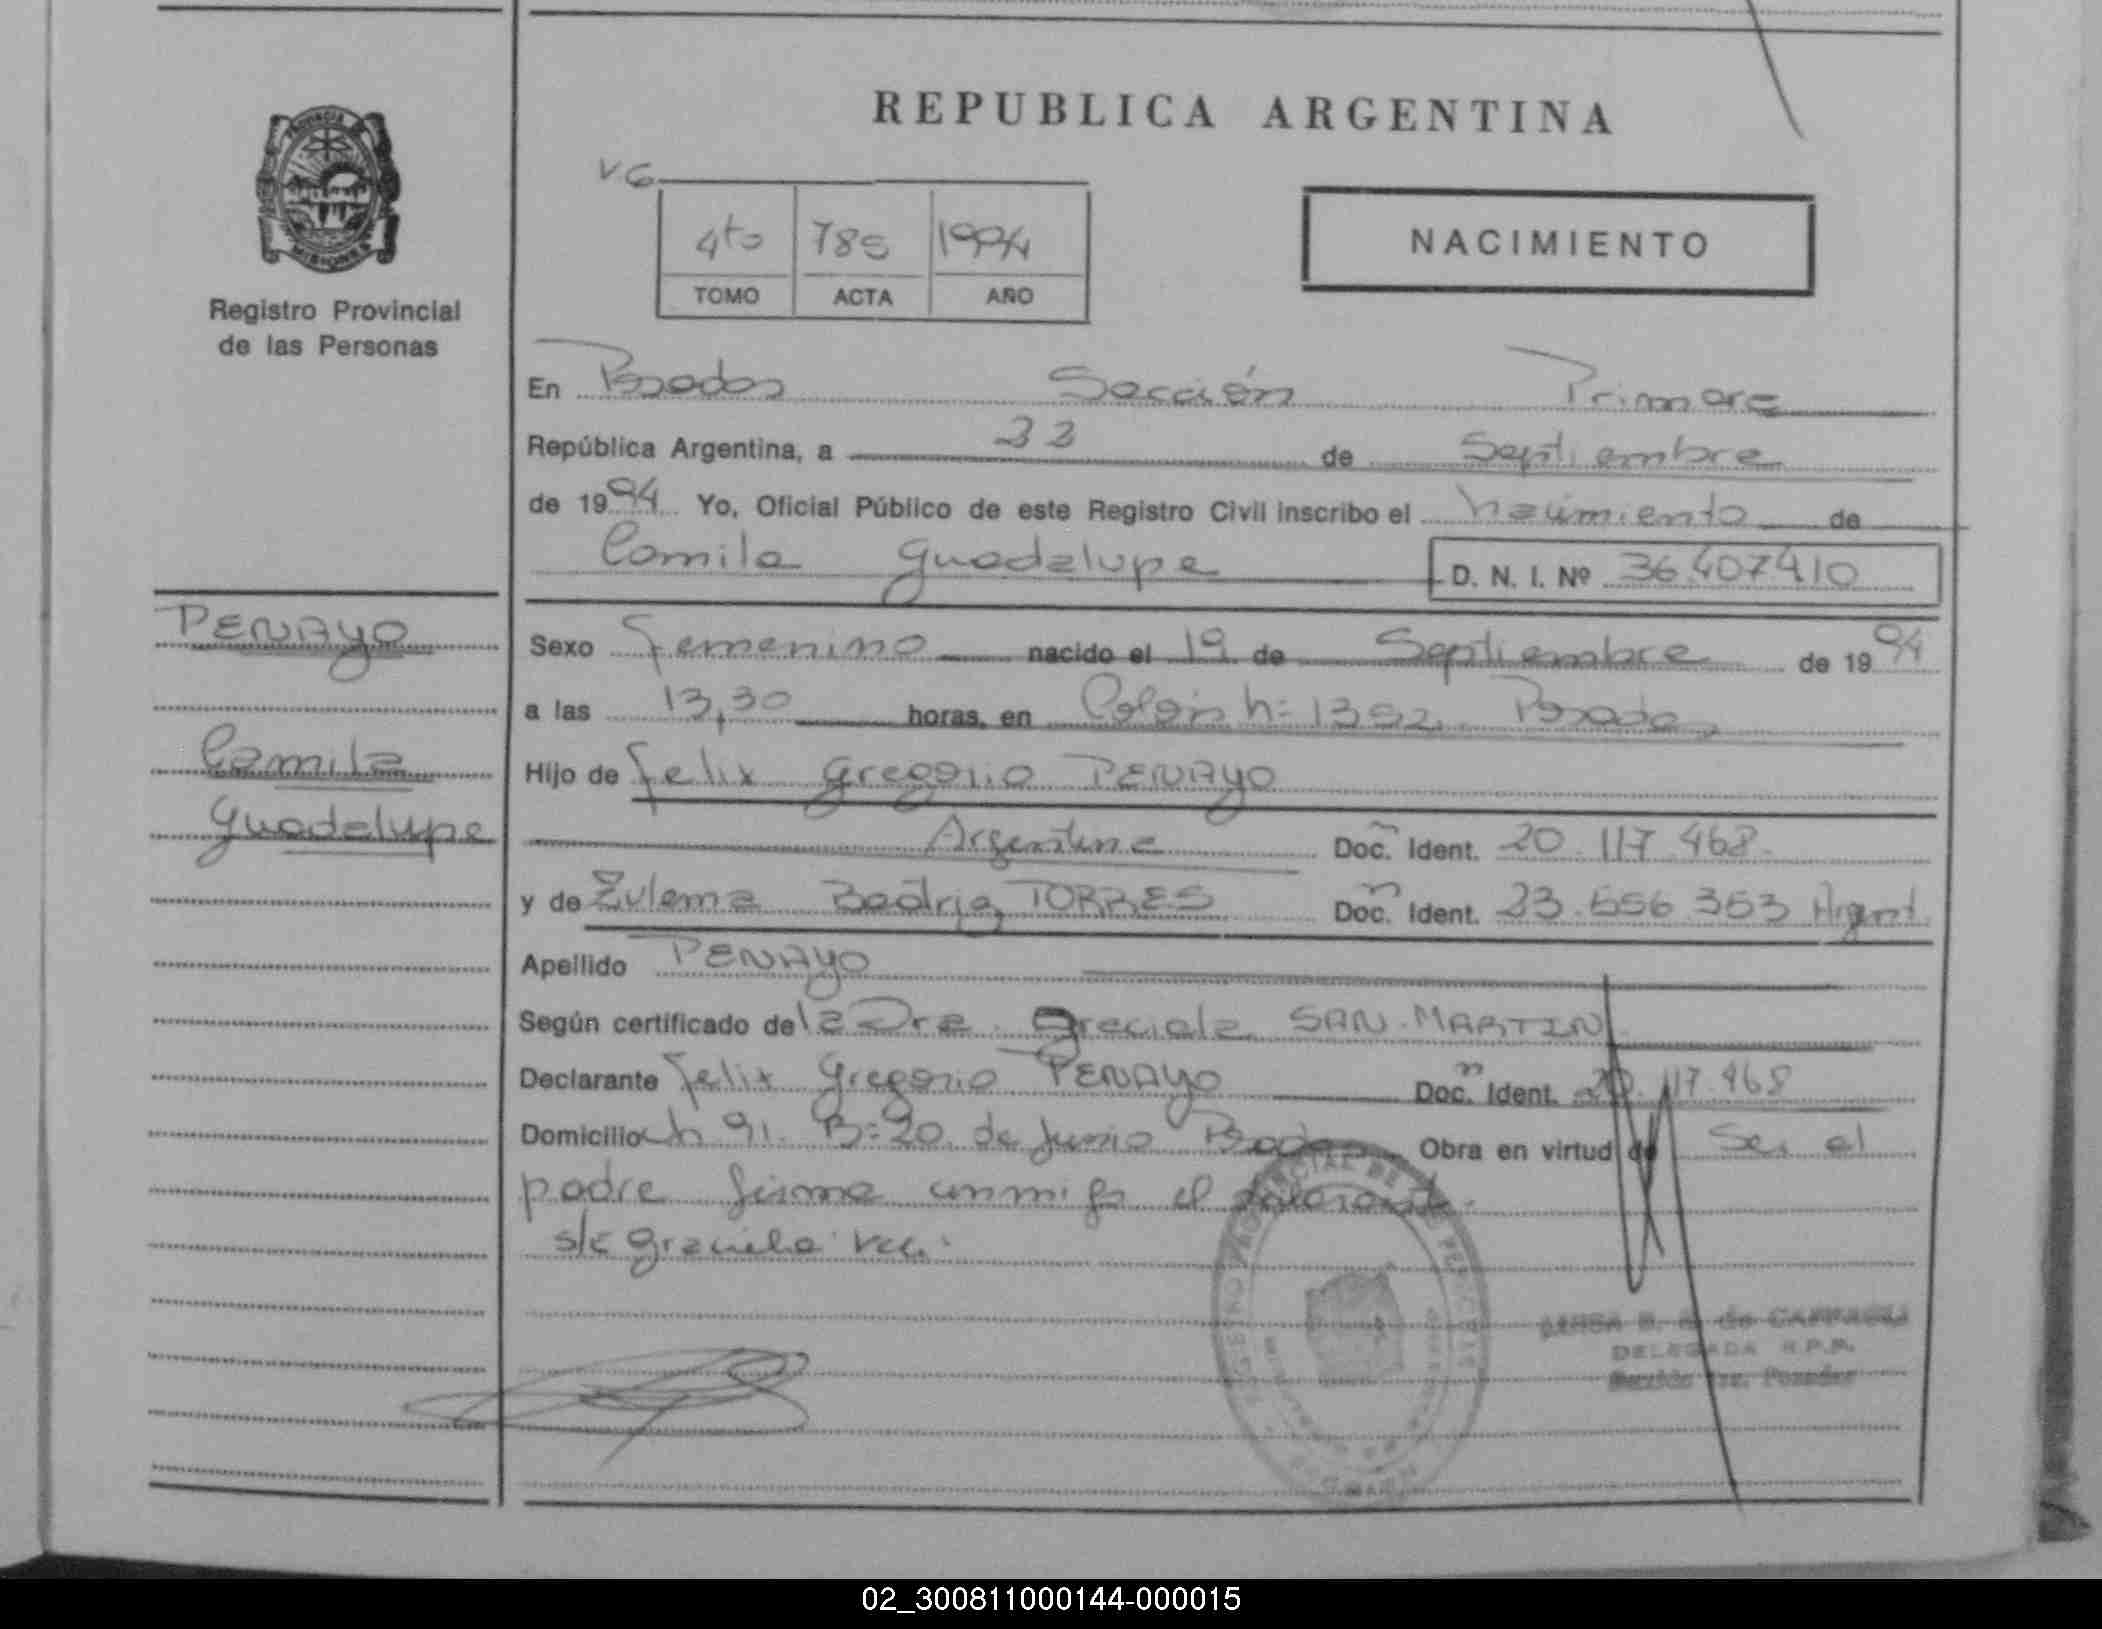 REPUBLICA ARGENTINA
PROVINCIA DE
MISIONES
Registro Provincial
de las Personas
VG
4to 785 1994
TOMO ACTA AÑO
NACIMIENTO
En Posadas Sección Primera
República Argentina, a 22 de Septiembre
de 1994 Yo, Oficial Público de este Registro Civil inscribo el nacimiento de
Camila Guadalupe D. N. I. Nº 36.407410
PENAYO
Camila
Guadalupe
Sexo femenino nacido el 19 de Septiembre de 1994
a las 13,30 horas, en Colón n= 1352. Posadas
Hijo de Felix Gregorio PENAYO
Argentina Doc. Ident. 20.117.468.
y de Zulema Beatriz TORRES Doc. Ident. 23.556.353 Argent.
Apellido PENAYO
Según certificado de la Dra. Graciela SAN-MARTIN
Declarante Felix Gregorio PENAYO Doc. Ident. 20.117.468
Domicilio ch 91. B=20 de Junio Posadas Obra en virtud de Ser el
padre firma conmigo el
s/c Graciela
DELEGADA R.P.P.
02_300811000144-000015